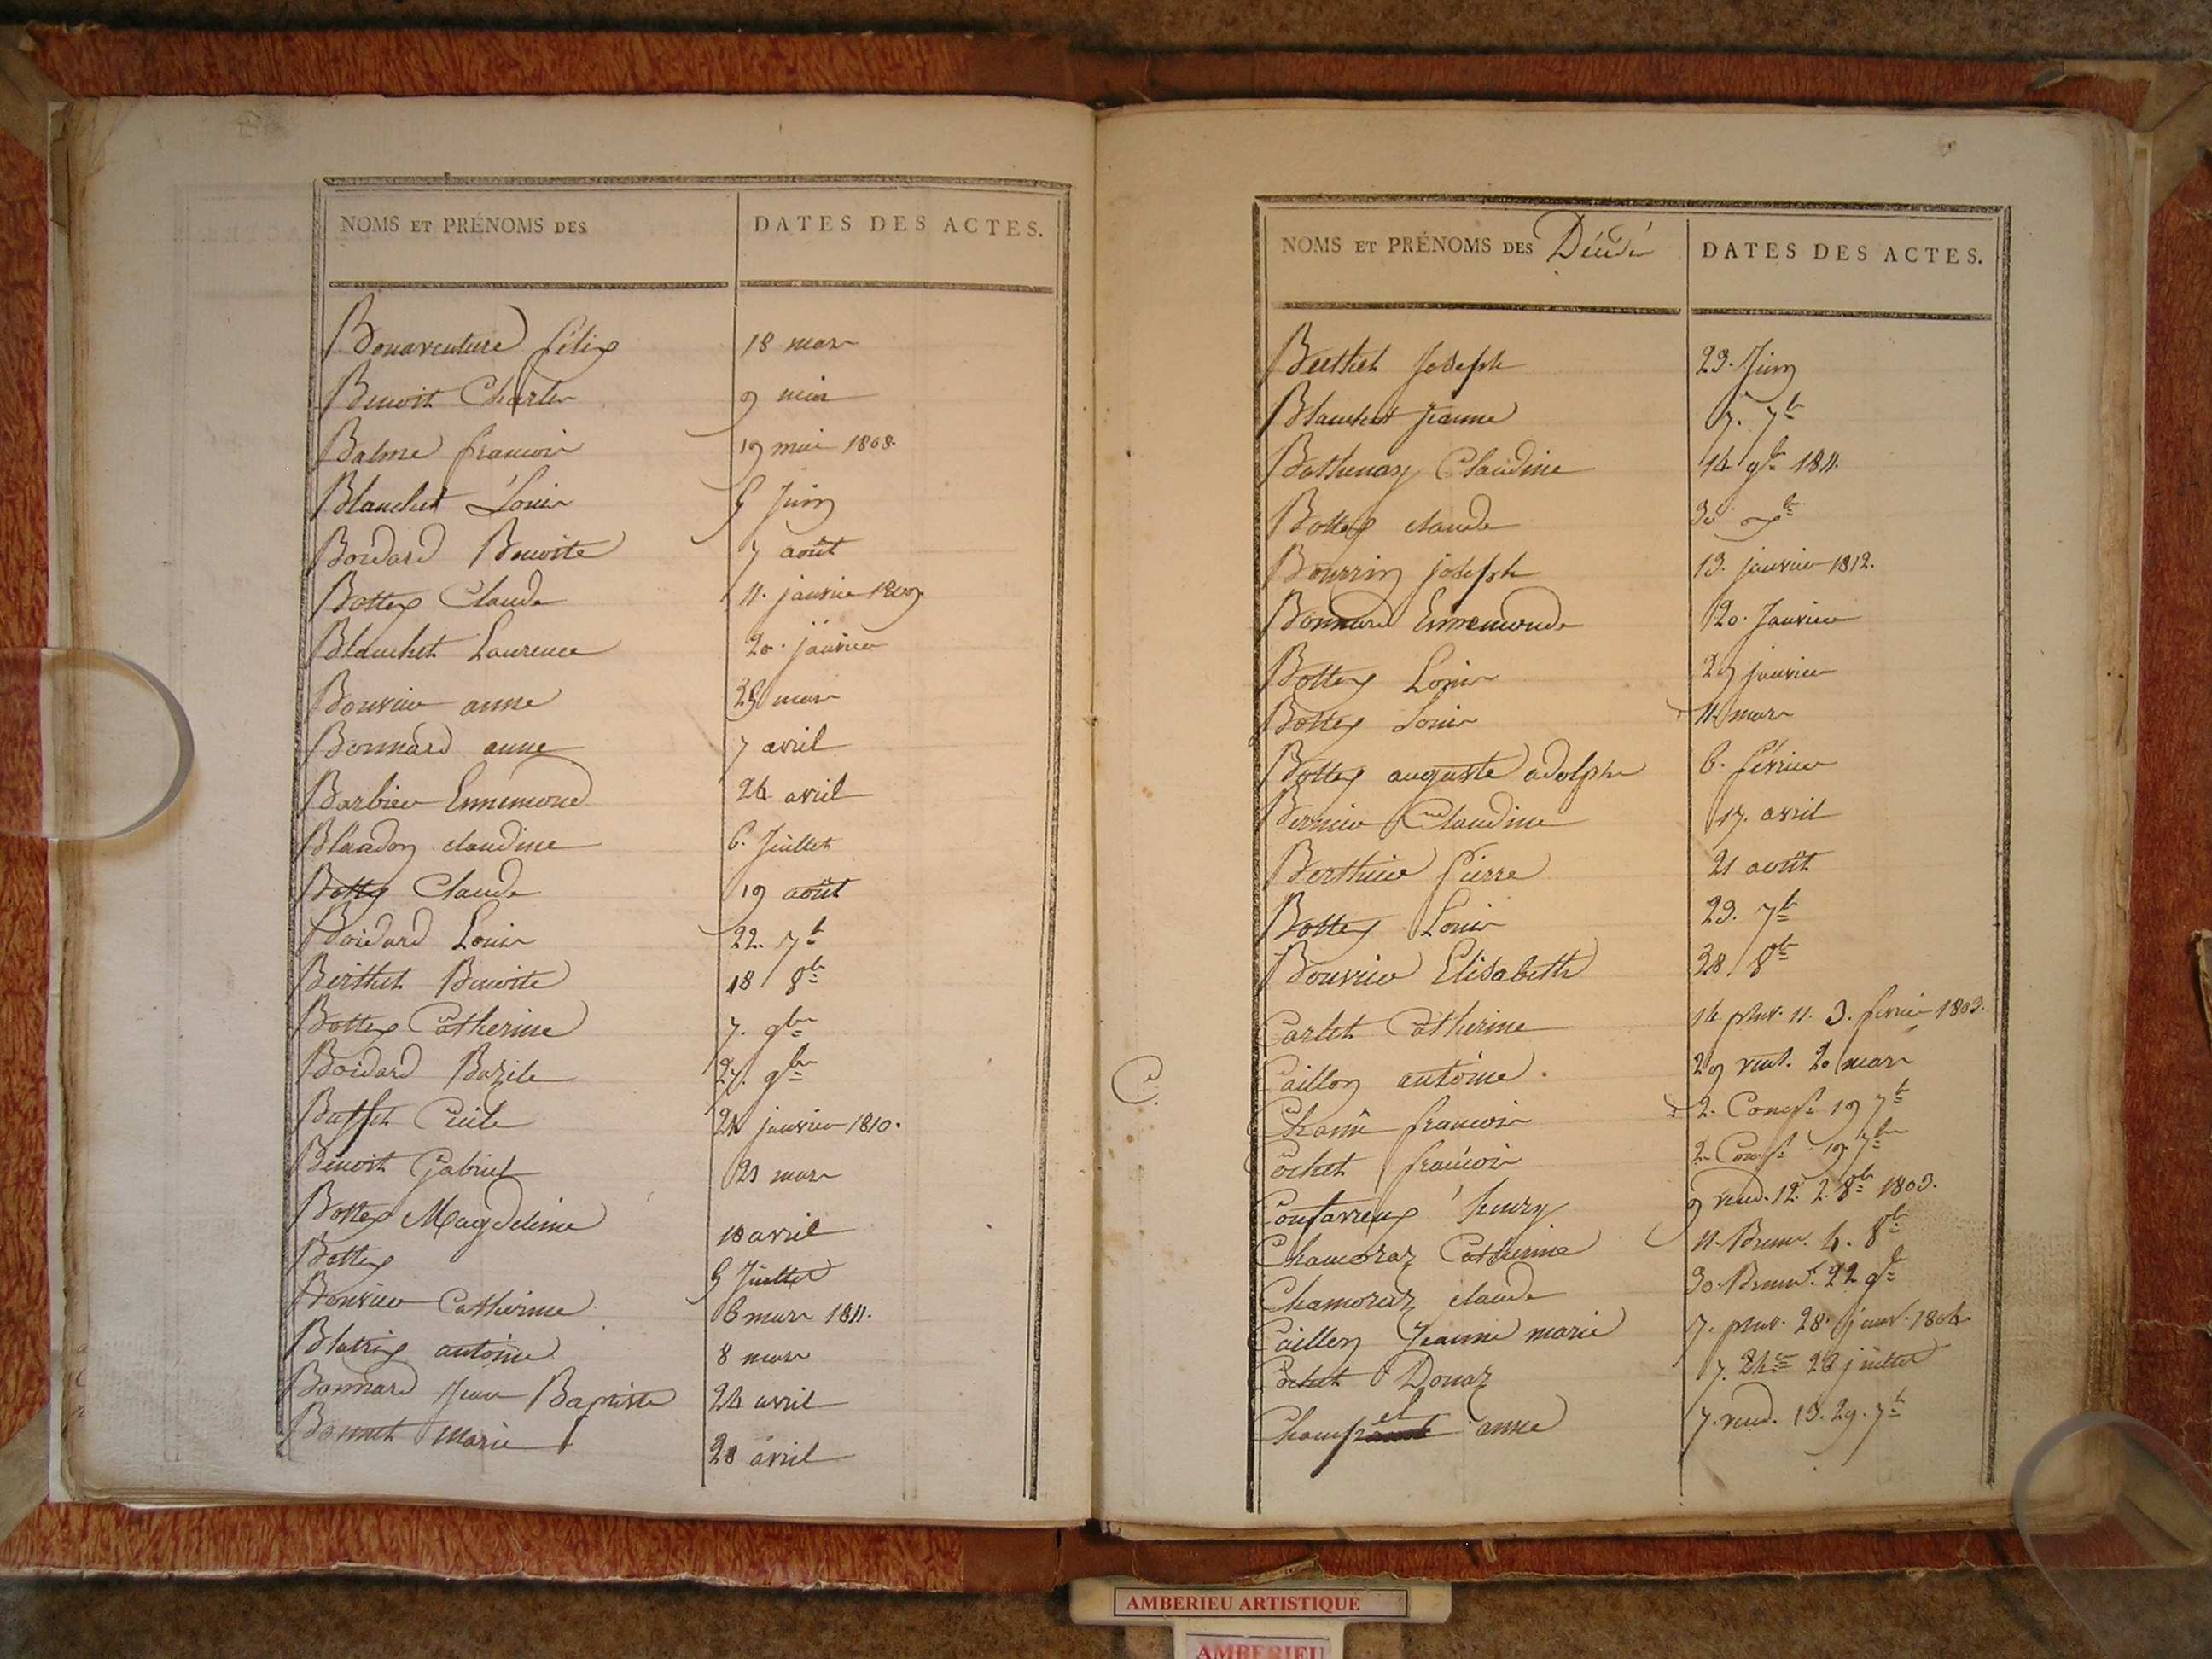 NOMS ET PRÉNOMS DES
DATES DES ACTES.
Bonaventure félix 18 mars
Benoit Charles 9 mai
Balme francois 19 mai 1808.
Blanchet Louis 5 Juin
Boidard Benoite 7 août
Bottex Claude 11. janvier 1809.
Blanchet Laurence 20. janvier
Bouvier anne 25 mars
Bonnard anne 7 avril
Barbier Ennemond 24 avril
Blandon claudine 6. Juillet
Bottex Claude 19 août
Boidard Louis 22. 7b
Berthet Benoite 18 8b
Bottex Catherine 7. 9bre
Boidard Bazile 27. 9bre
Buffet Cécile 24 janvier 1810.
Benoit Gabriel 21 mars
Bottex Magdeleine 18 avril
Bottex 5 Juillet
Bouvier Catherine 6 mars 1811.
Blatrix antoine 8 mars
Bonnard Jean Baptiste 24 avril
Bonnet Marie 28 avril
NOMS ET PRÉNOMS DES Décédés
DATES DES ACTES.
Berthet Joseph 23. Juin
Blanchet Jeanne 7. 7b
Bathenay Claudine 14 9b 1811.
Bottex claude 30 xb
Bourrin joseph 13. janvier 1812.
Bonnard Ennemonde 20. Janvier
Bottex Louis 29 janvier
Bottex Louis 11 mars
Bottex auguste adolphe 6. février
Bernier Claudine 17. avril
Berthier Pierre 21 août
Bottex Louis 23. 7b
Bouvier Elisabeth 28 8b
C.
Carlet Catherine 14 pluv. 11. 3. février 1803.
Caillon antoine. 29 vent. 20 mars
francois 2. Comp. 19 7b
Cochet francois 2. Comp. 19. 7b
Coutavreux henry 9 vend. 12. 2. 8b 1803.
Chamoraz Catherine 11. Brum. 4. 8b
Chamoraz claude 30. Brum. 22 9b
Caillon Jeanne marie 7. pluv. 28. janv. 1804.
Cochet Donaz 7. 26 juillet
Champ el anne 7. vend. 13. 29. 7b
AMBERIEU ARTISTIQUE
AMBERIEU